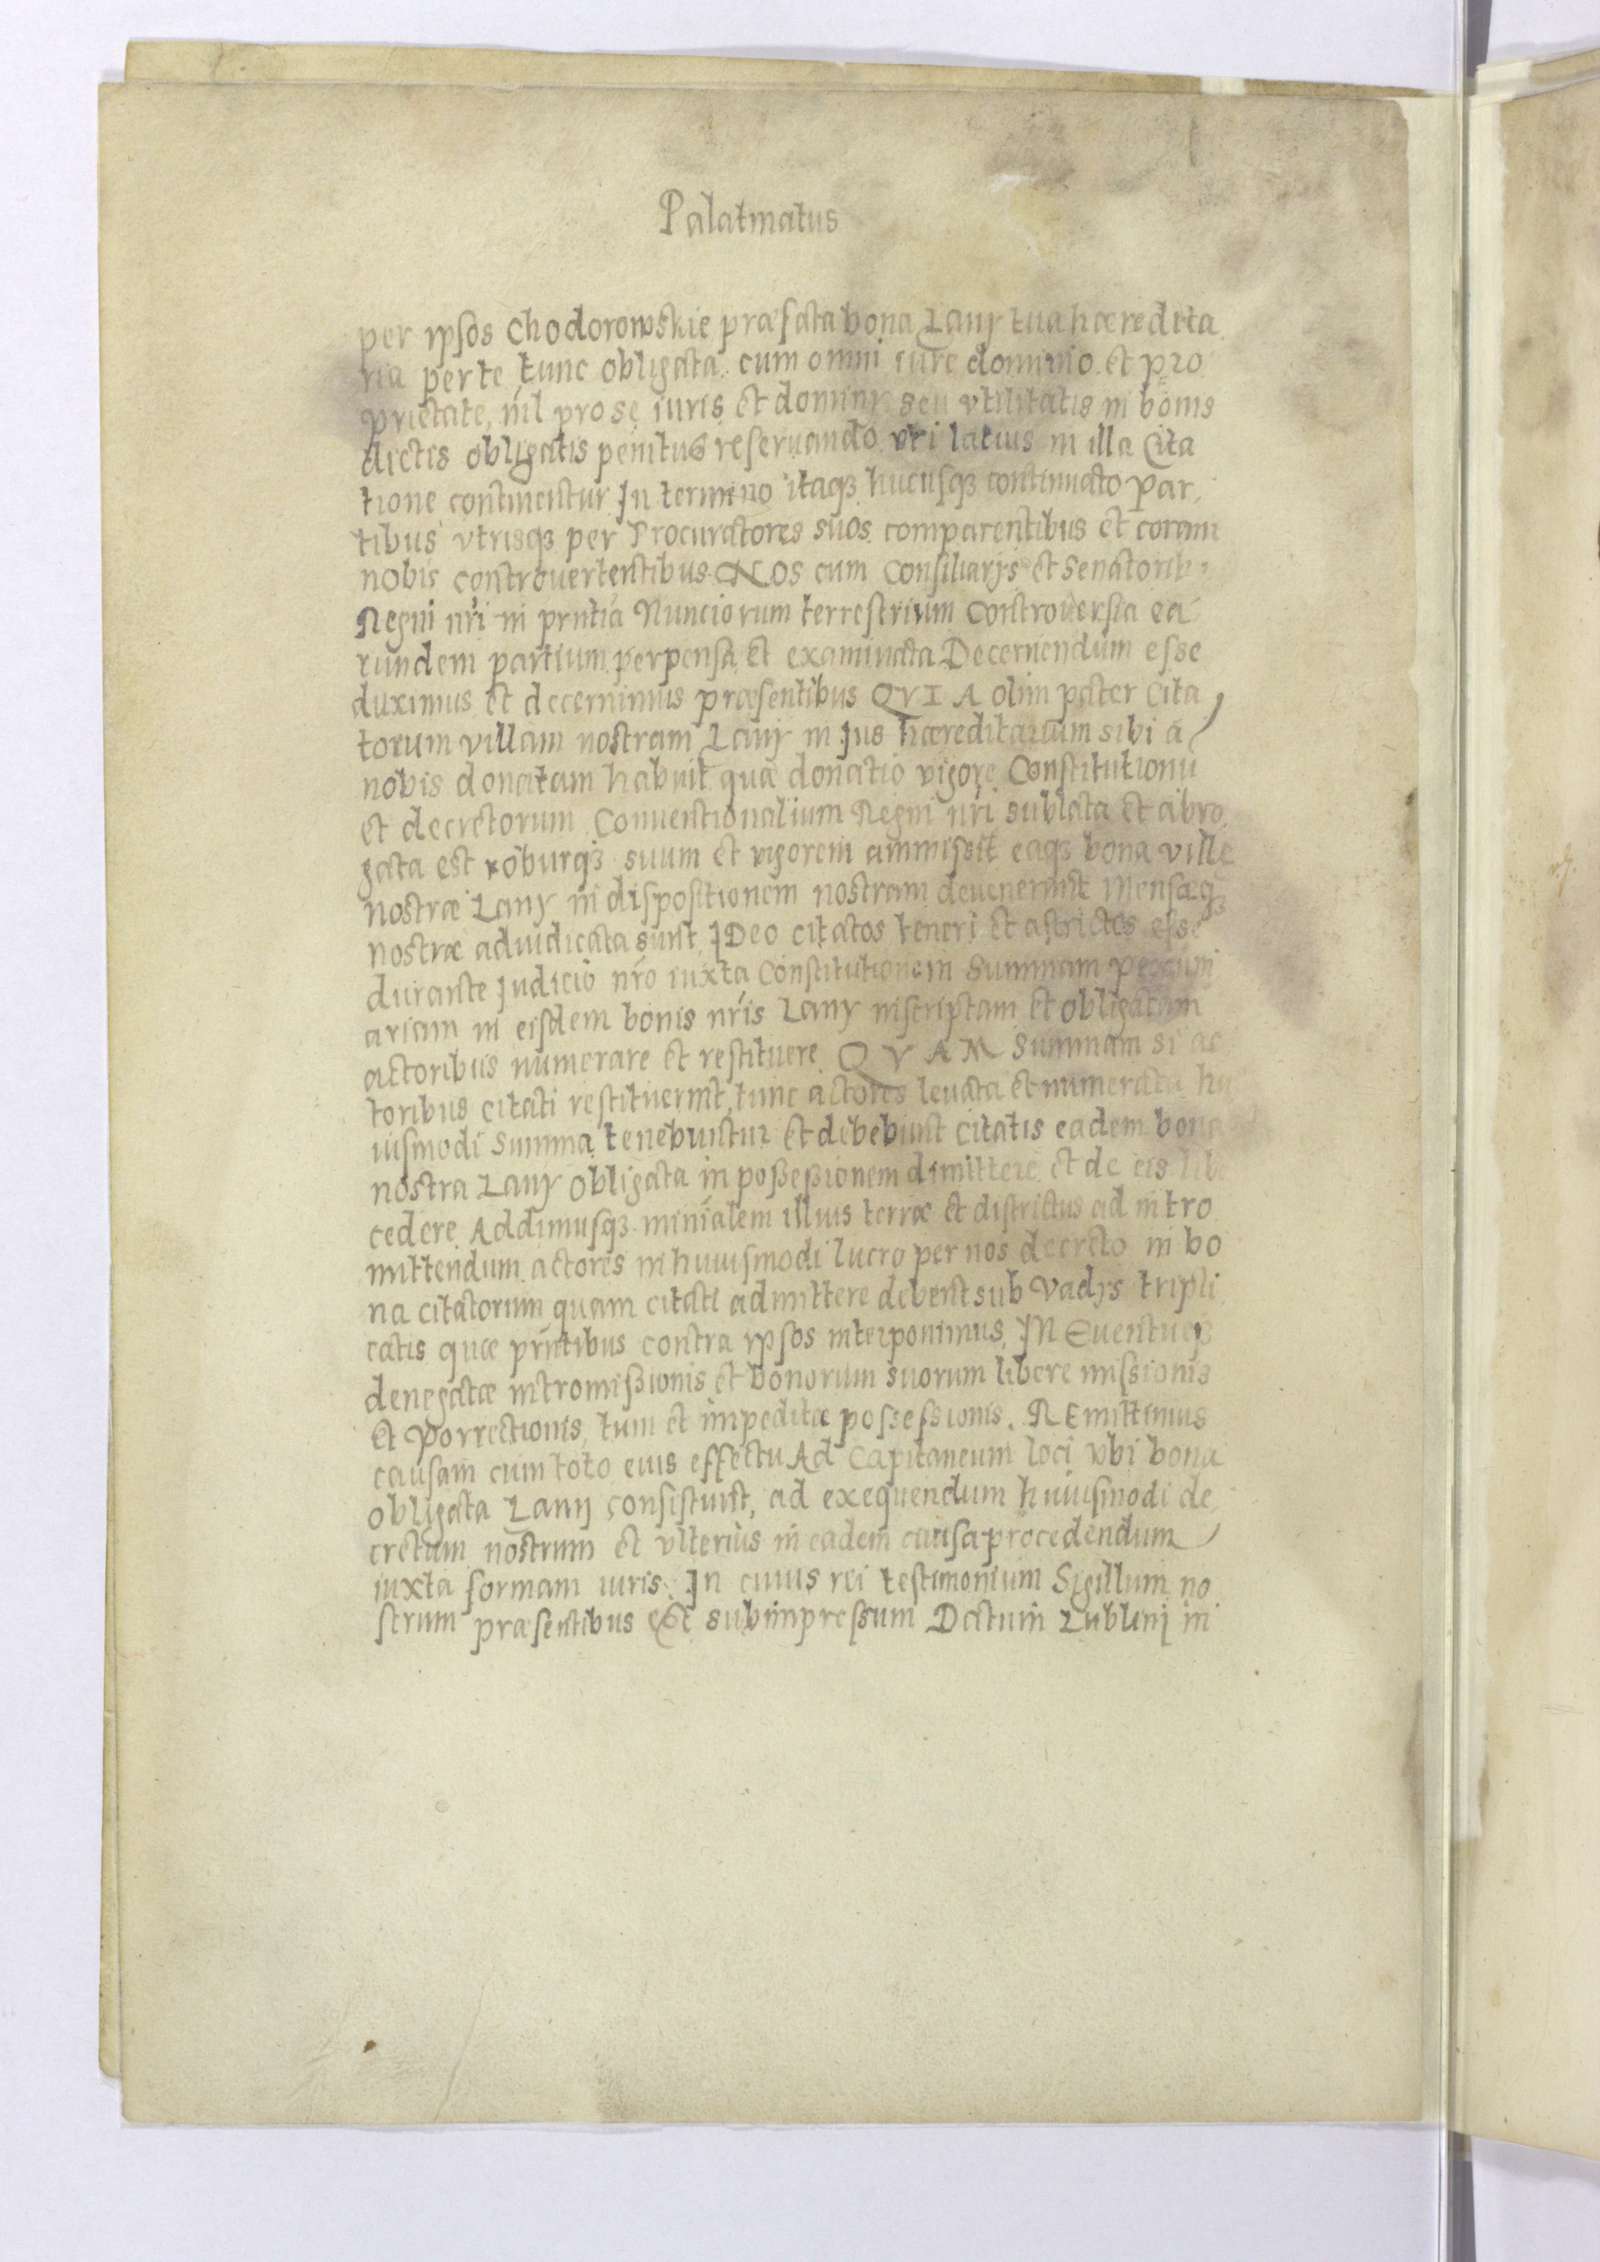 Palatinatus
per ypsos Chodorowskie præfata bona Lany tua hæredita
ria per te tunc obligata cum omni iure dominio et pro
prietate, nil pro se iuris et dominy seu vtilitatis in bonis
dictis obligatis penitus reseruando vti latius in illa Cita
tione continentur In termino itaqꝫ hucusqꝫ continuato Par
tibus vtrisqꝫ per Procuratores suos comparentibus et coram
nobis controuertentibus NOS cum Consiliarijs et Senatorib
Regni nr̃i in prñtia Nunciorum terrestrium Controuersia ea
rundem partium perpensa et examinata Decernendum esse
duximus et decernimus præsentibus QVIA olim pater Cita
torum villam nostram Lany in Jus hæreditarium sibi a
nobis donatam habuit quæ donatio vigore Constitutionũ
et decretorum Conuentionalium Regni nr̃i sublata et abro
gata est roburqꝫ suum et vigorem ammisit eaqꝫ bona ville
nostræ Lany in dispositionem nostram deuenerunt Mensæqꝫ
nostræ adiudicata sunt IDeo citatos teneri et astrictos esse
durante Judicio nr̃o iuxta Constitutionem Summam pecuni
ariam in eisdem bonis nr̃is Lany inscriptam et obligatam
actoribus numerare et restituere QVAM Summam si ac
toribus citati restituerint, tunc actores leuata et numerata hu
iusmodi Summa tenebuntur et debebunt Citatis eadem bona
nostra Lany obligata in poßeßionem dimittere et de eis libe
cedere Addimusqꝫ minr̃alem illius terræ et districtus ad intro
mittendum actores in huiusmodi lucro per nos decreto in bo
na citatorum quam citati admittere debent sub Vadijs tripli
catis quæ prñtibus contra ypsos interponimus, IN Euentu
denegatæ intromißionis et bonorum suorum libere missionis
et Porrectionis, tum et impeditæ possessionis. REmittimus
causam cum toto eius effectu Ad Capitaneum loci vbi bona
obligata Lanij consistunt, ad exequendum huiusmodi de
cretum nostrum et vlterius in eadem causa procedendum
iuxta formam iuris. In cuius rei testimonium Sigillum no
strum præsentibus est subimpressum Datum Lublinj in